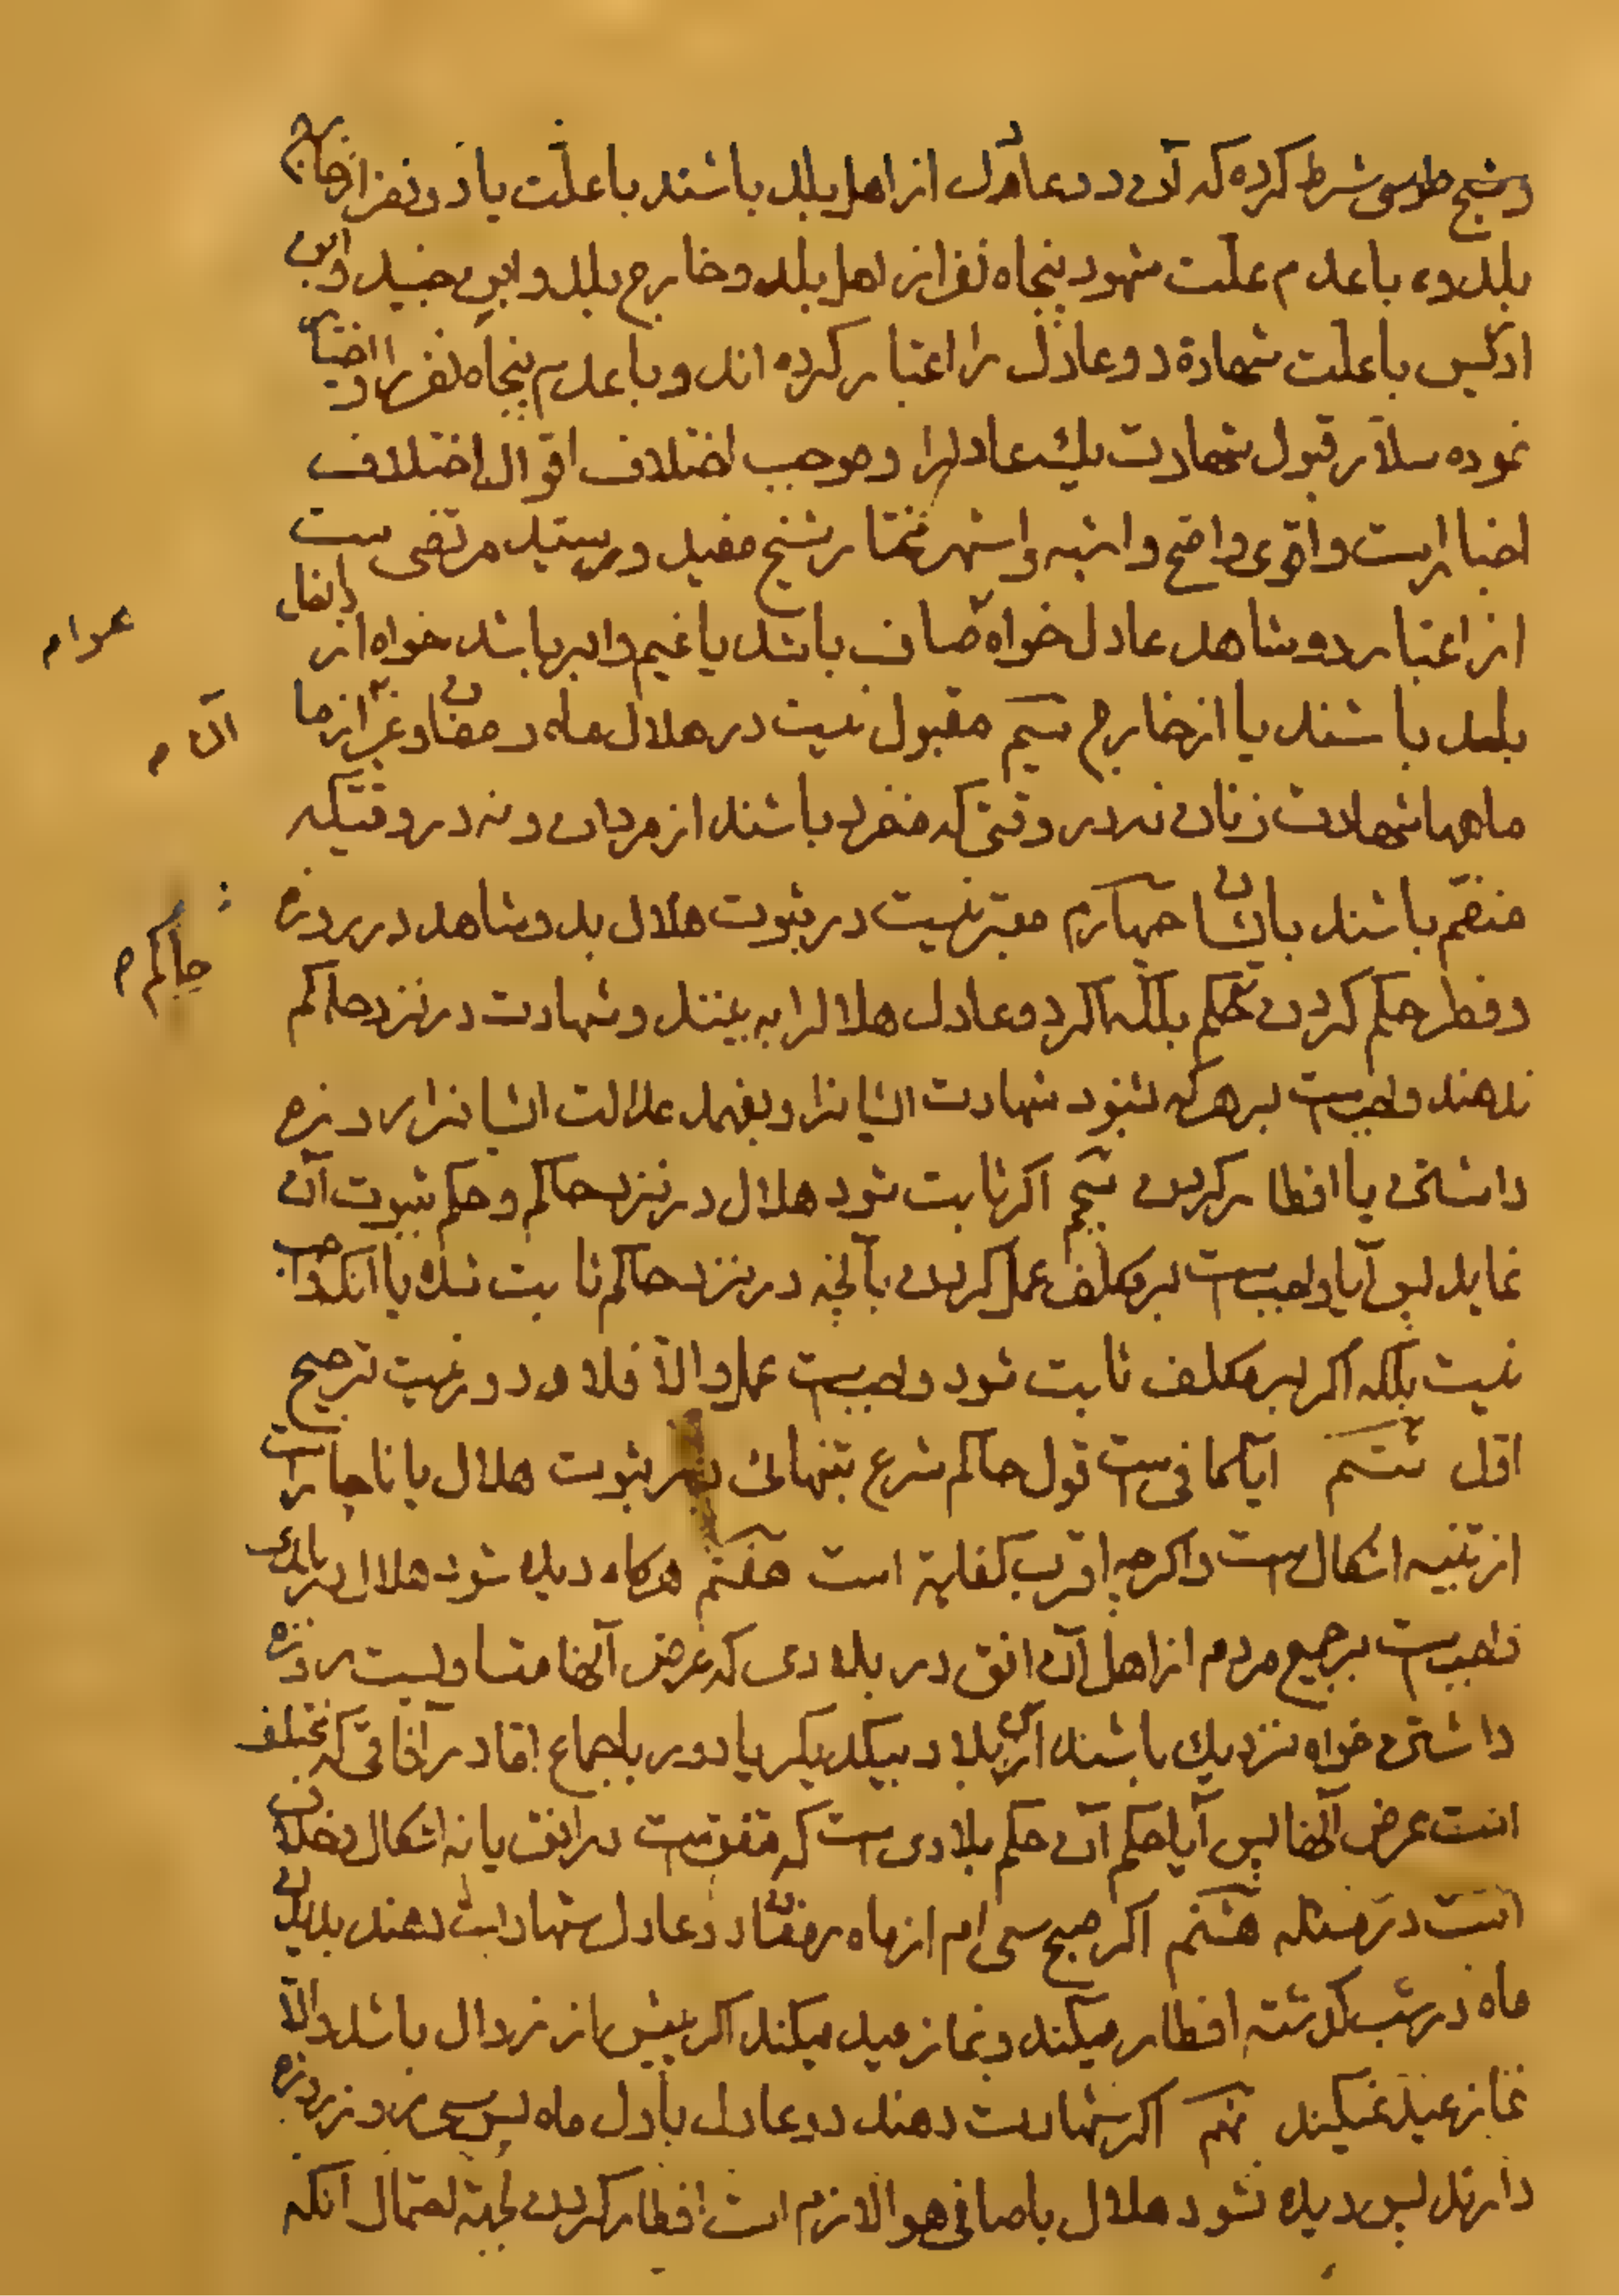 و شیخ طوسی شرط کرده که آن دو عادل از اهل بلد باشند با علّت یا دو نفر از خارج
بلد و با عدم علّت شهود پنجاه نفر از اهل بلد و خارج بلد و ابن جنید و ابن
ادریس با علّت شهادة دو عادل را اعتبار کرده اند و با عدم پنجاه نفر را و اختیار
نموده سلار قبول شهادت یك عادلرا و موجب اختلاف اقوال اختلاف
اخبار است و اقوی و اصح و اشبه و اشهر مختار شیخ مفید و سید مرتضی ست
از اعتبار دو شاهد عادل خواه صاف باشد یا غیم و ابر باشد خواه از داخل
بلد باشند یا از خارج سیم مقبول نیست در هلال ماه رمضان و غیر از ماه
ماهها شهادت زنان نه در وقتی که منفرد باشند از مردان و نه در وقتیکه
منضم باشند بایشان چهارم معتبر نیست در ثبوت هلال بدو شاهد در روزه
و فطر حکم کردن حکم بلکه اکر دو عادل هلال را به بینند و شهادت در نزد حاکم
ندهند واجب ست بر هر که شنود شهادت ایشانرا و بفهمد عدالت ایشانرا روزه
داشتن یا افطار کردن پنجم اکر ثابت شود هلال در نزد حاکم و حکم ثبوت آن
نماید پس آیا واجب ست بر مکلف عمل کردن بآنچه در نزد حاکم ثابت شده یا آنکه واجب
نیست بلکه اکر بر مکلف ثابت شود واجب ست عمل و الّا فلا و دور نیست ترجیح
اوّل ششم آیا کافی ست قول حاکم شرع بتنهائی در ثبوت هلال یا ناچار است
از تثنیه اشکال ست و اکرچه اقرب کفایة است هفتم هرکاه دیده شود هلال در بلدی
واجب ست بر جمیع مردم از اهل آن افق در بلادی که عرض آنها متساویست روزه
داشتن خواه نزدیك باشند آن بلاد بیکدیکر یا دور باجماع امّا در آفاقی که مختلف
است عرض آنها پس آیا حکم آن حکم بلادی ست که متفق ست در افق یا نه اشکال و خلاف
است در مسئله هشتم اکر صبح سی ام از ماه رمضان دو عادل شهادت دهند بدیدن
ماه در شب کذشته افطار میکند و نماز عید میکند اکر پیش از زوال باشد و الّا
نماز عید نمیکند نهم اکر شهادت دهند دو عادل باول ماه پس سی روز روزه
دارند پس دیده نشود هلال با صافی هوا لازم است افطار کردن بجهة احتمال آنکه
عوام
آن م
حاکم م